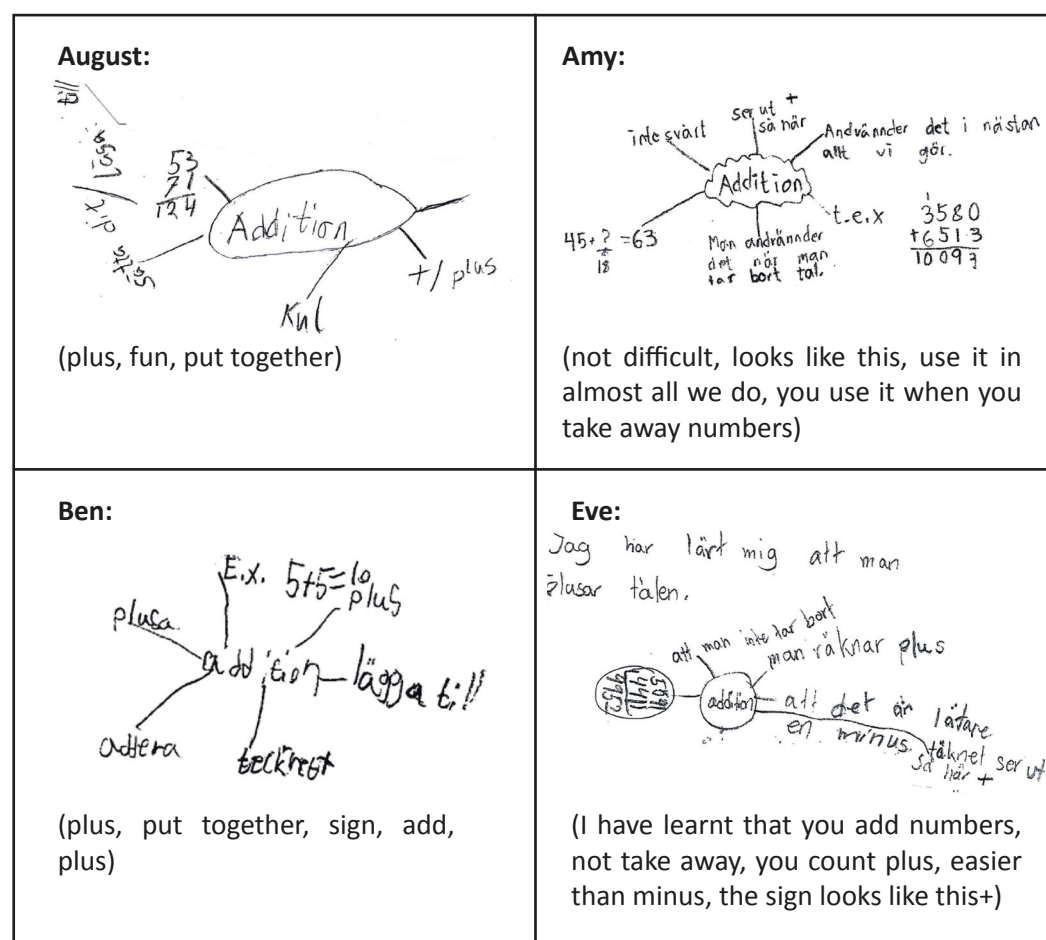 August:
lägga
till
53
71
124
Addition
sätta
+/ plus
Kul
(plus, fun, put together)
Amy:
ser ut +
så här
inte svårt
Andvännder det i nästan
allt vi gör.
Addition
t.e.x
3580
+6513
10093
45+ ? =63
18
Man andvännder
det när man
tar bort tal.
(not difficult, looks like this, use it in
almost all we do, you use it when you
take away numbers)
Ben:
E.x. 5+5=10
plus
plusa
addition
lägga till
addera
(plus, put together, sign, add,
plus)
Eve:
Jag har lärt mig att man
plusar talen.
att man inte tar bort
man räknar plus
addition
att det är lätare
en minus
täknet ser ut
så här +
(I have learnt that you add numbers,
not take away, you count plus, easier
than minus, the sign looks like this+)